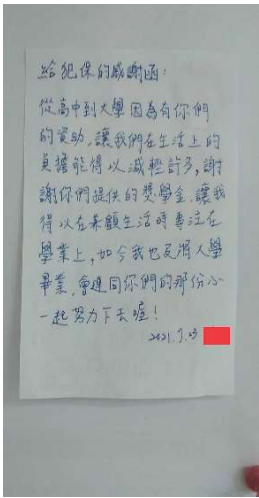 給犯保的感謝函:
從高中到大學因為有你們
的資助,讓我們在生活上的
負擔能得以減輕許多,謝
謝你們提供的獎學金,讓我
得以在兼顧生活時專注在
學業上,如今我也及將大學
畢業,會連同你們的那份心
一起努力下去喔!
2021.9.23